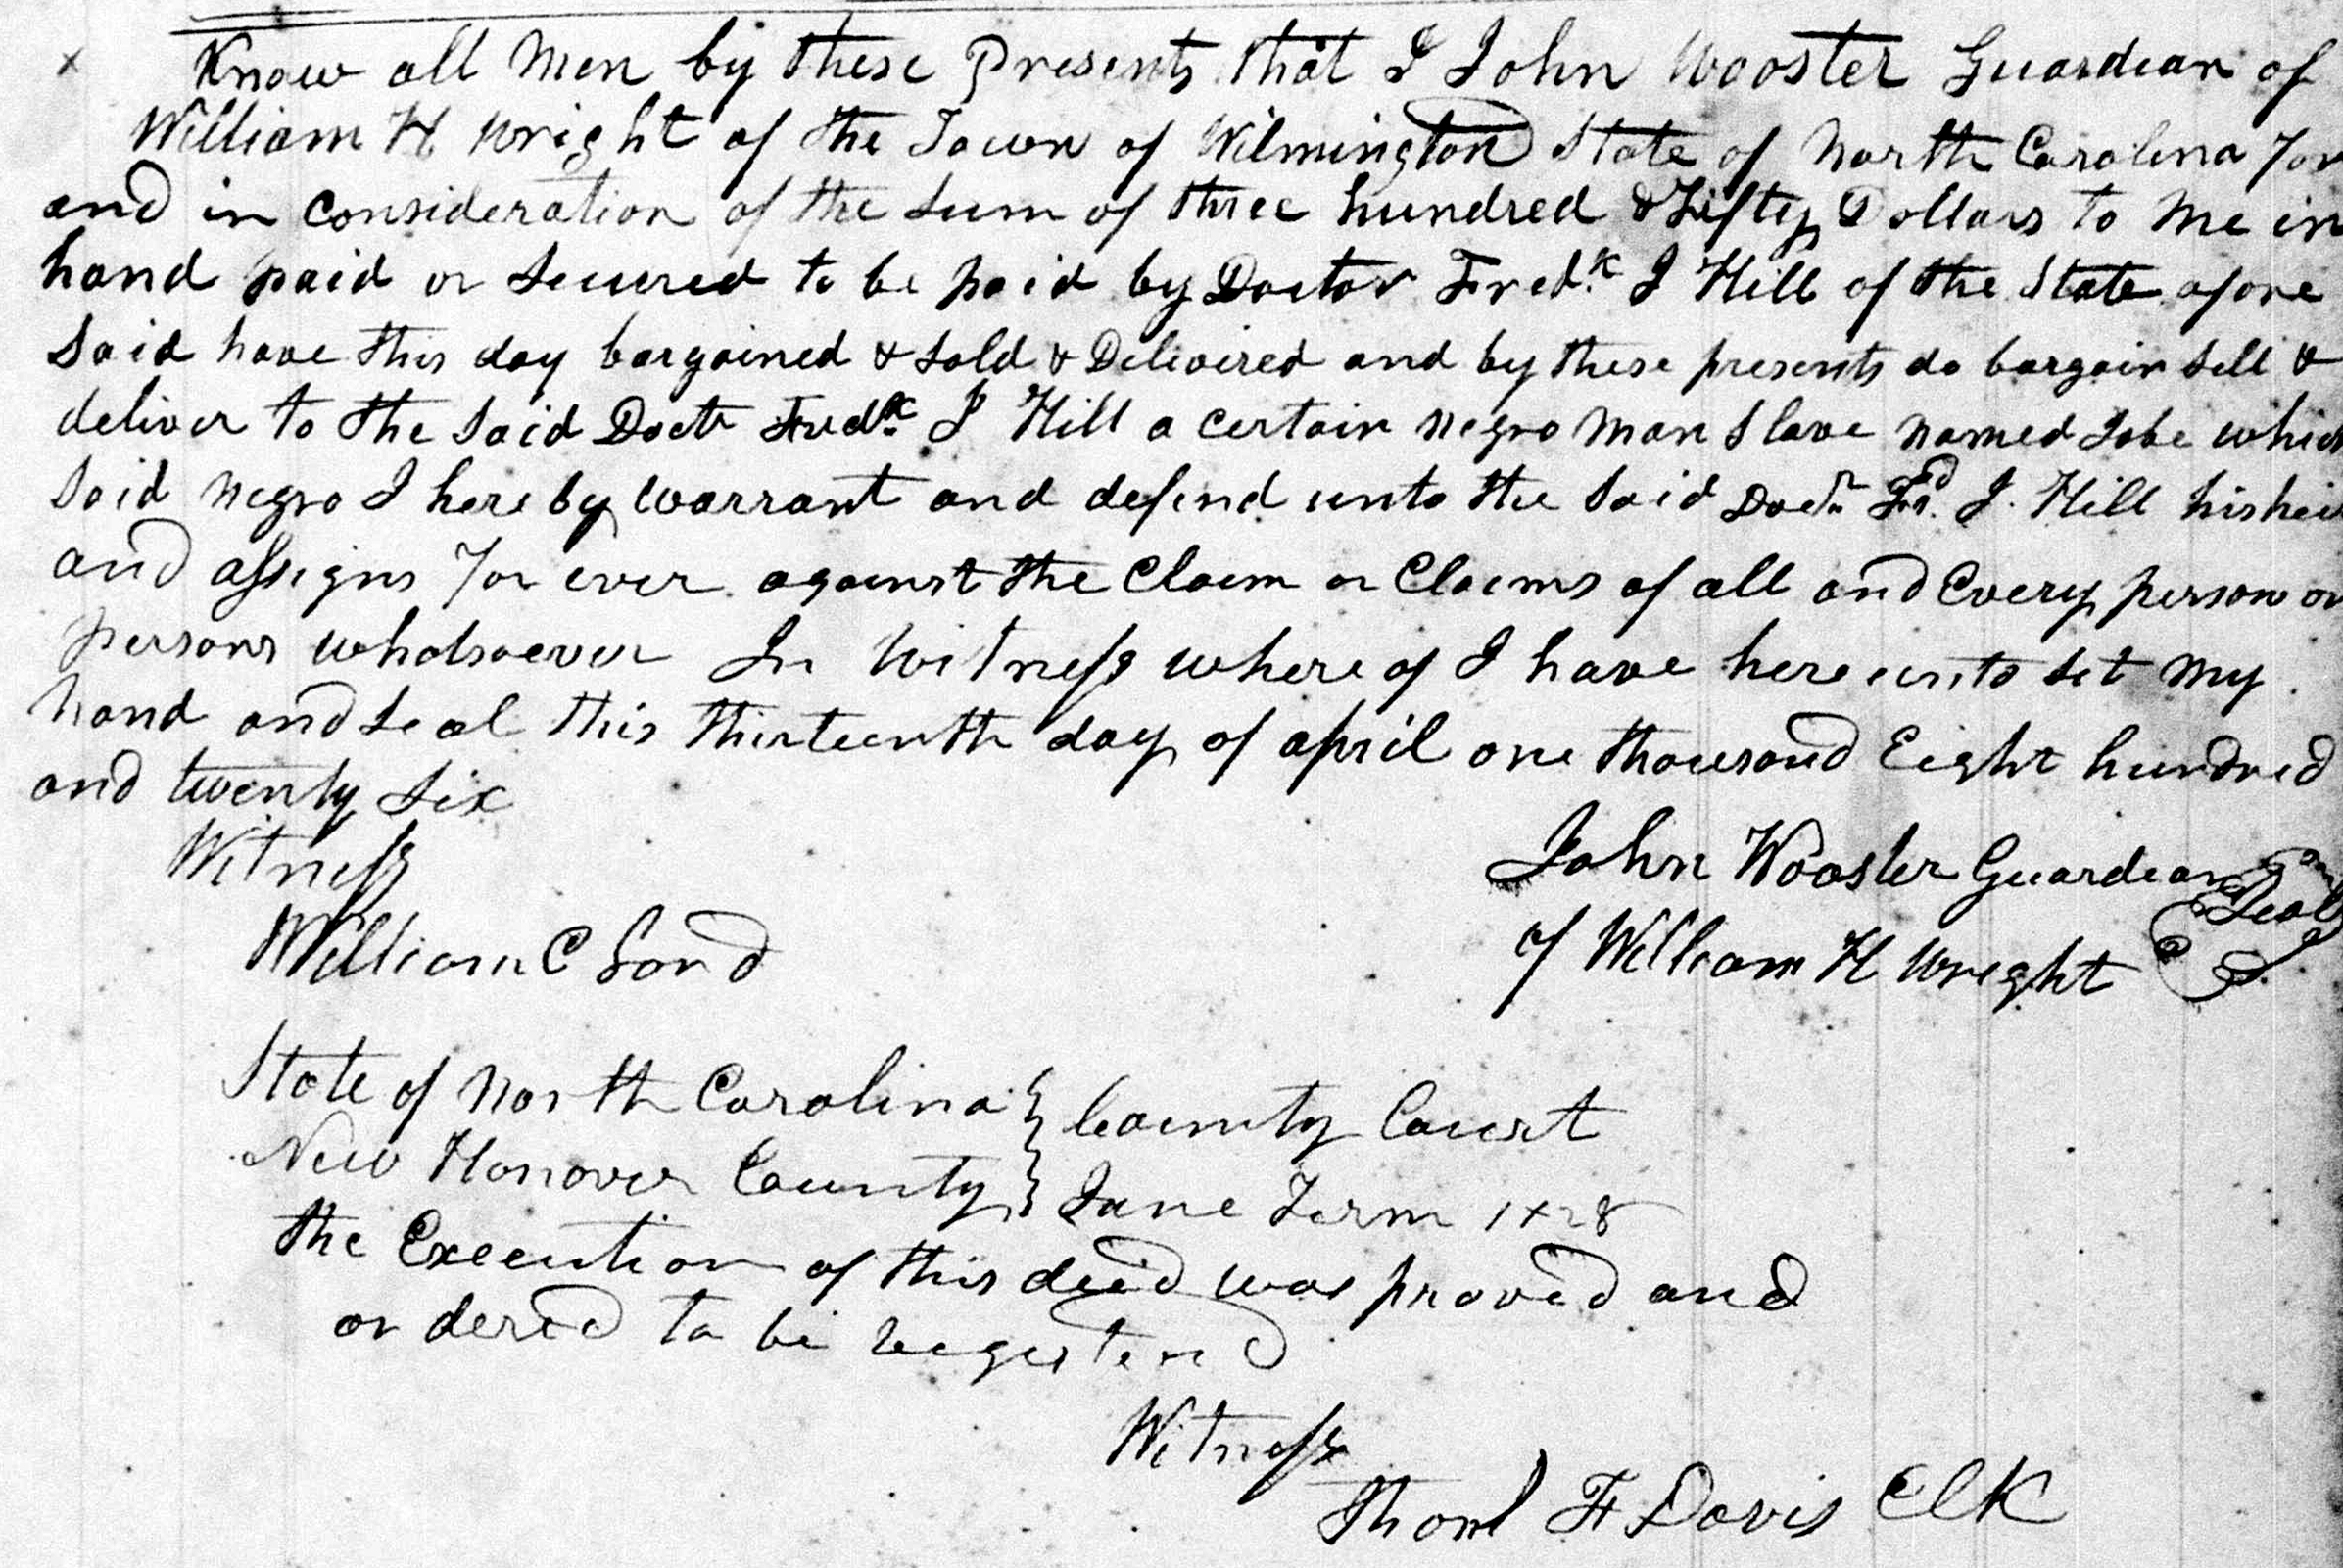 Know all Men by these Presents that I John Wooster Guardian of
William H Wright of the Town of Wilmington State of North Carolina for
and in consideration of the Sum of three hundred & Fifty Dollars to me in
hand paid or Secured to be paid by Doctor Fredk. J Hill of the State afore
Said have this day bargained & Sold & Delivered and by these presents do bargain Sell &
deliver to the Said Doctr Fredk. J Hill a certain negro man Slave named Jobe which
Said negro I here by warrant and defend unto the Said Doctr. Fd. J. Hill his heirs
and assigns for ever against the Claim or Claims of all and Every person or
persons whatsoever In Witness where of I have here unto Set my
hand and Seal this thirteenth day of april one thousand Eight hundred
and twenty Six
Witness
John Wooster Guardian Seal
William C Lord
of William H Wright
State of North Carolina } County Court
New Hanover County } June Term 1828
the Execution of this deed was proved and
or dered to be registered
Witness
Thom F Davis Clk